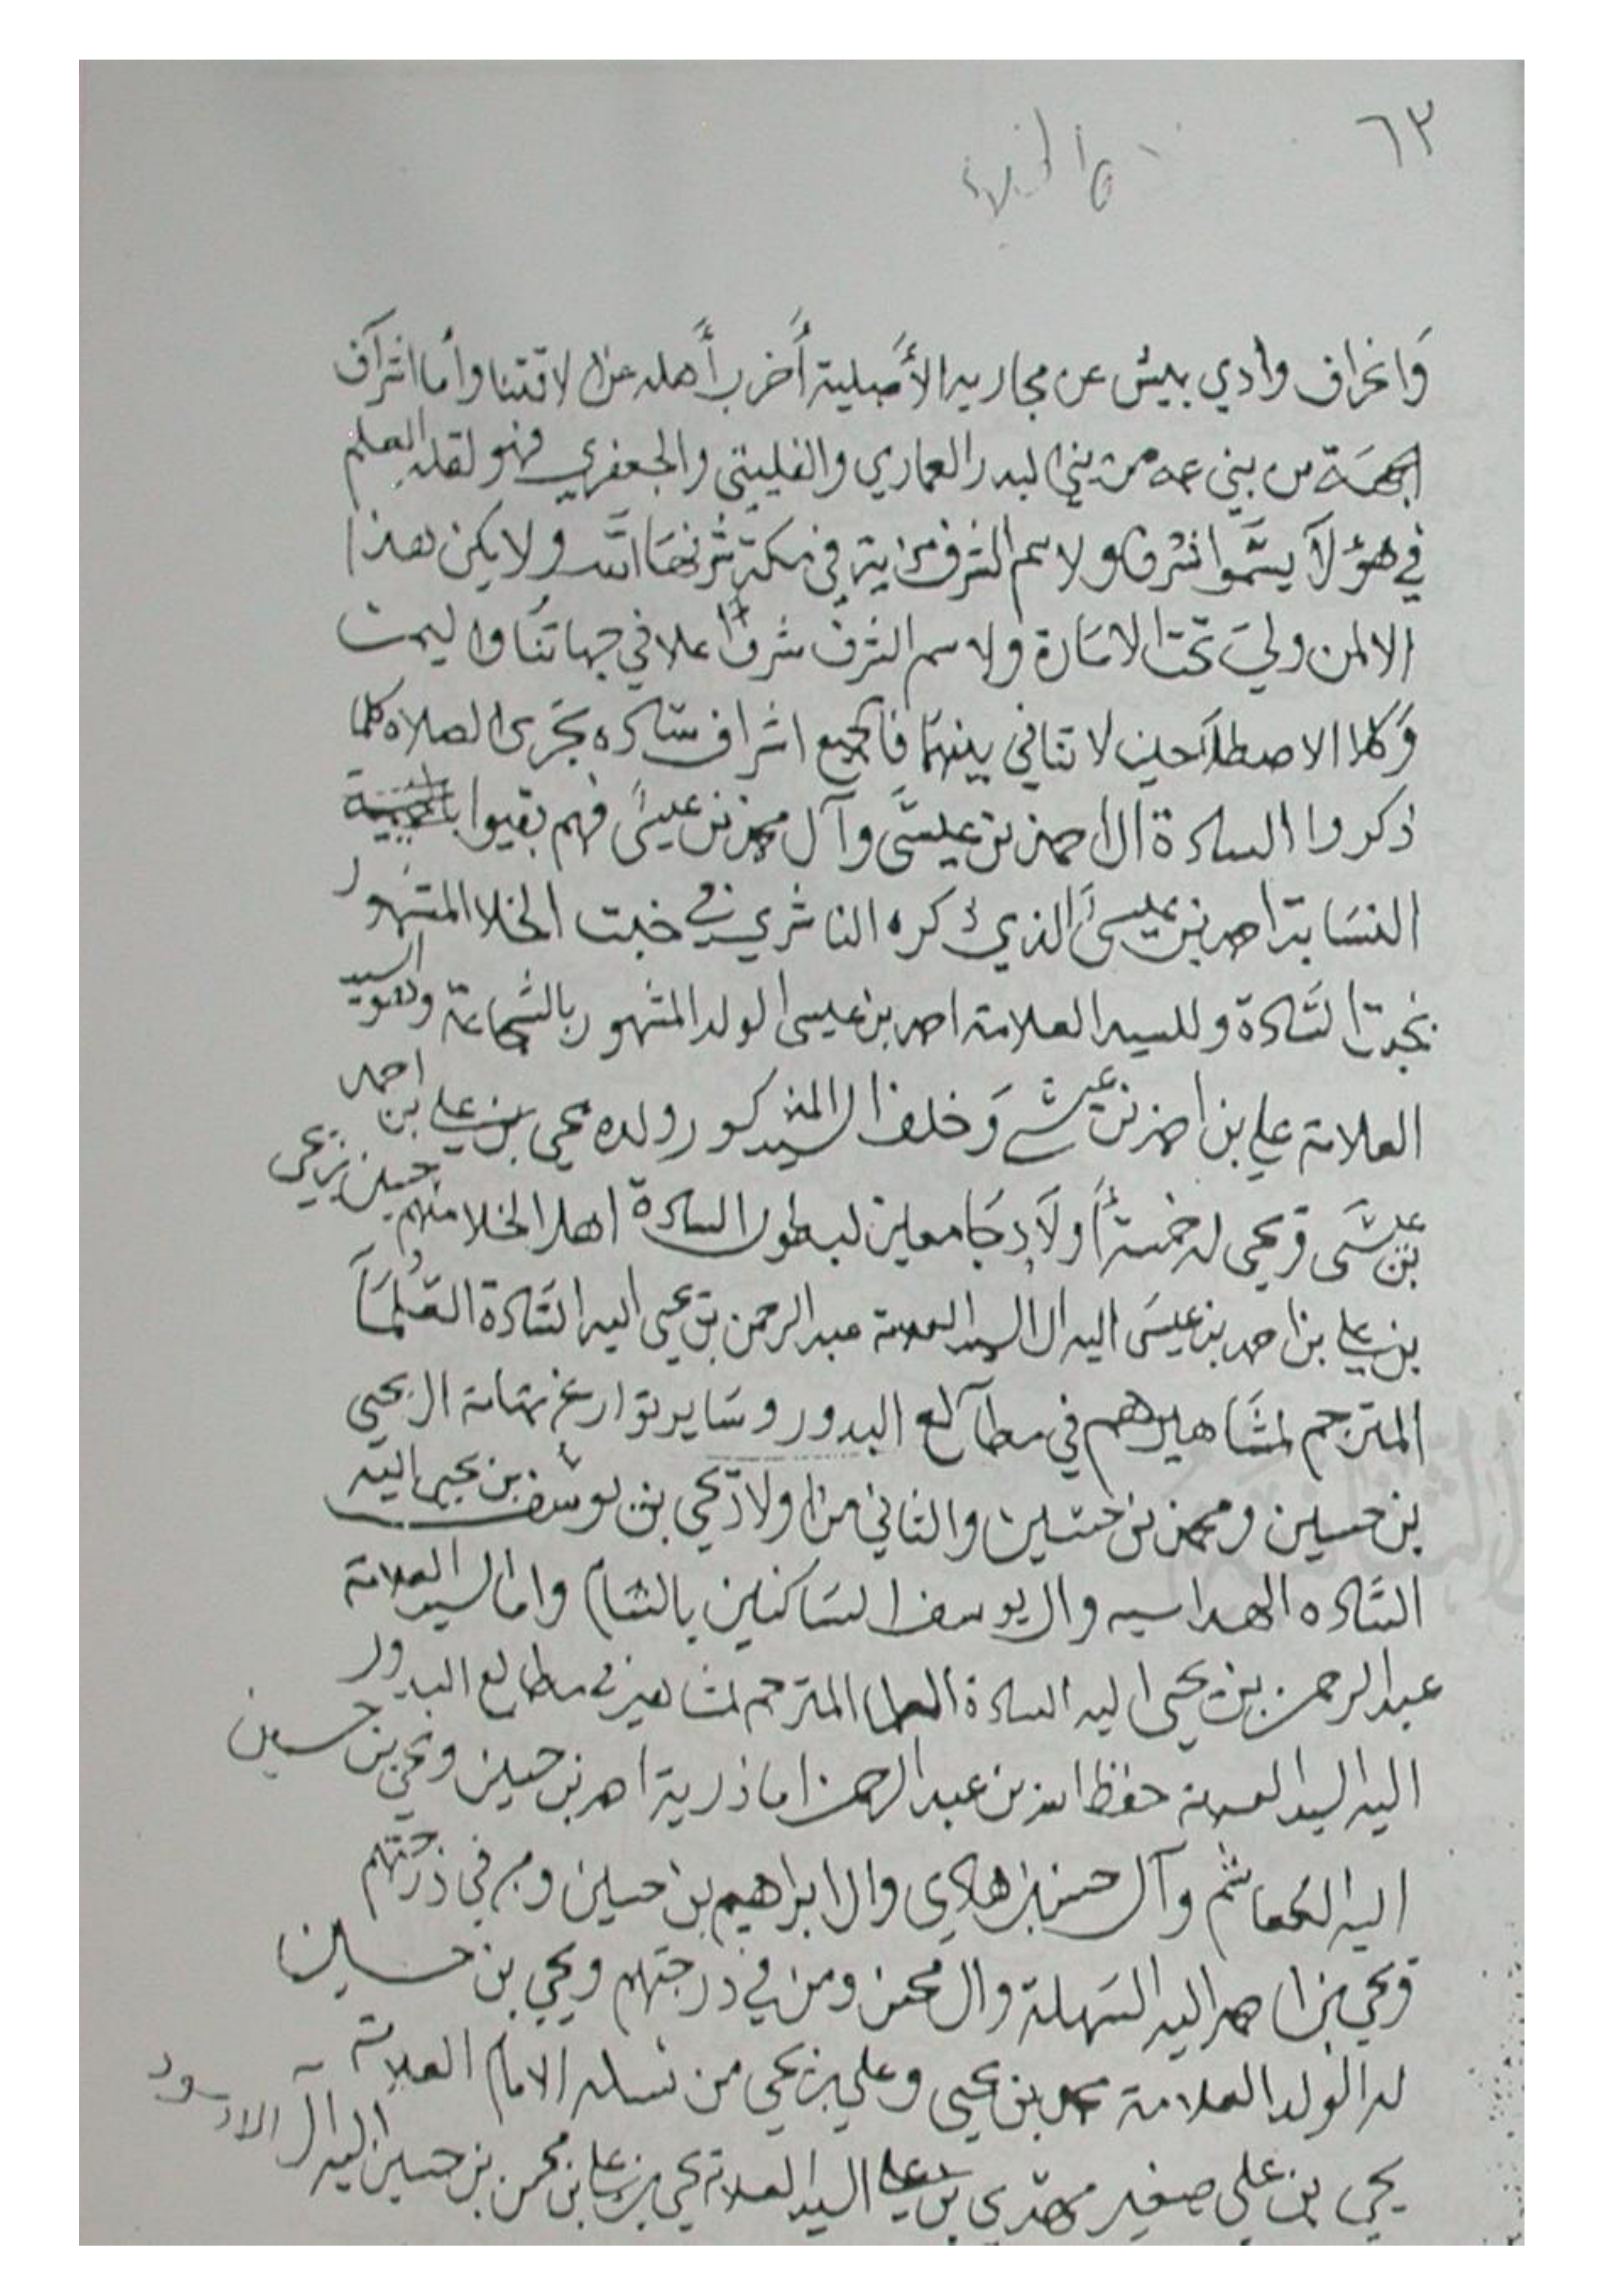 ٦٣
وَانحراف وادي بيش عن مجاريه الأصلية أخرب أهله عن لاقتنا وأما اشراف
الجهة من بني عمه من بني البدر العماري والفليتي والجعفري فهو لقلة العلم
في هؤلآ يسموا شرفا ولاسم الشرف مزاية في مكة شرفها الله ولا يكن هذا
الا لمن ولي تحت الامارة ولاسم الشرف شرفا علا في جهاتنا واليمن
وَكلا الاصطلاحين لا تنافي بينهما فالجميع اشراف ساده بجرى الصلاه كلما
ذكروا السادة ال احمد بن عيسى وآل محمد بن عيسى فهم بقيوا
النسابة احمد بن عيسى الذي ذكره الناشري في خبت الخلا المشهور
بخبت السادة وللسيد العلامة احمد بن عيسى الولد المشهور بالشجاعة وهو السيد
العلامة علي بن احمد بن عيسى وَخلف السيد المذكور ولده يحي بن علي بن احمد
بن عيسى ويحي له خمسة أولاد جامعين لبطون السادة اهل الخلا منهم حسين بن يحي
بن علي بن احمد بن عيسى اليه ال السيد العلامة عبدالرحمن بن يحيى اليه السادة العُلمَآ
المترجم لمشاهيرهم في مطالع البدور وسَاير تواريخ تهامة ال يحيى
بن حسين ومحمد بن حسين والثاني من اولاد يحي بن يوسف بن يحيى اليه
السَاده الهداسيه وال يوسف الساكنين بالشام واما السيد العلامة
عبدالرحمن بن يحيى اليه السادة العلما المترجم لمشاهير في مطالع البدور
اليه السيد العلامة حفظ الله بن عبدالرحمن اما ذرية احمد بن حسين ويحي بن حسين
اليه وآل حسن بن هادي وال ابراهيم بن حسين ومن في درجتهم
ويحي بن احمد اليه السهلة وال محسن ومن في درجتهم ويحيى بن حسين
له الولد العلامة محمد بن يحيى وعلي بن يحي من نسله الامام العلامة
يحي بن علي صغير مهدي بن علي السيد العلامة يحي بن علي بن محسن بن حسين اليه آل الاسود